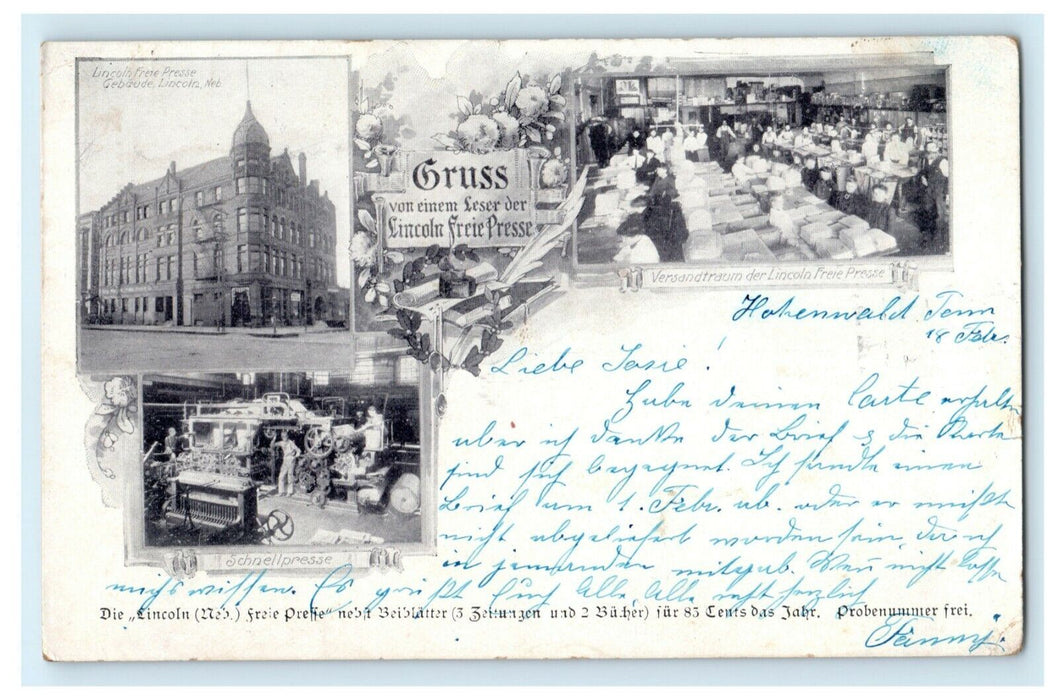 Lincoln Freie Presse
Gebäude, Lincoln, Neb.
Gruss
von einem Leser der
Lincoln Freie Presse
Versandtraum der Lincoln Freie Presse
Schnellpresse
Hohenwald Tenn
18 Febr.
Liebe Josie!
Habe deinen Carte erhalten
aber ich denke der Brief & die Charte
sind sich begegnet. Ich sandte einen
Brief am 1. Febr. ab. oder er müßte
nicht abgeliefert worden sein, da ich
in jemanden mitgab. Was nicht hoffe
michs wissen. Es grüßt Euch Alle, Alle recht herzlich
Die „Lincoln (Neb.) Freie Presse“ nebst Beiblätter (3 Zeitungen und 2 Bücher) für 85 Cents das Jahr. Probenummer frei.
Fanny.